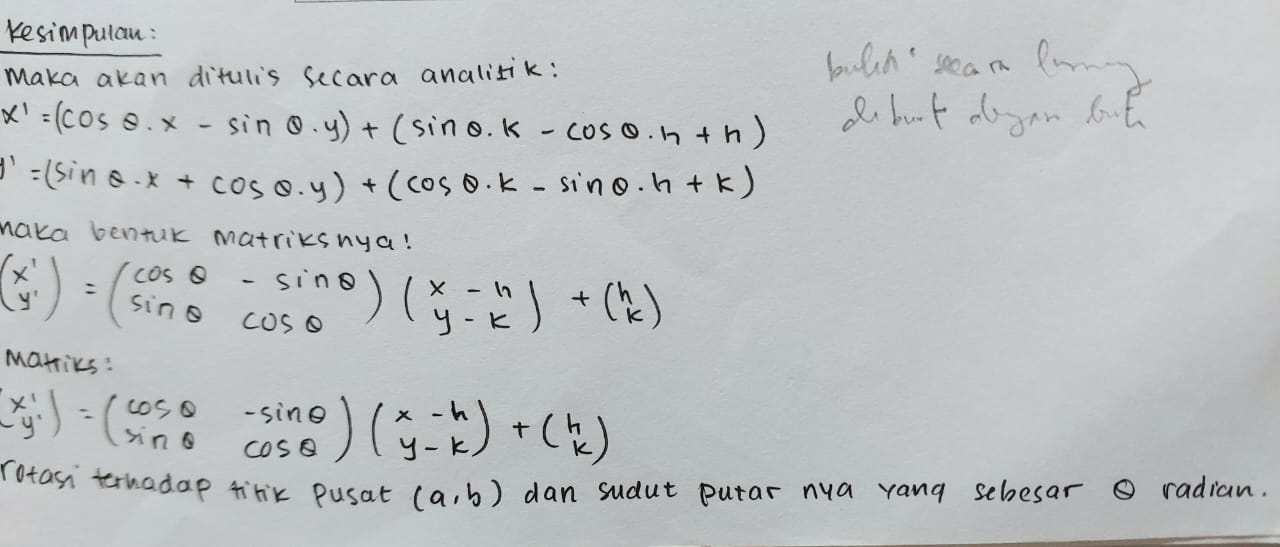 Kesimpulan:
Maka akan ditulis secara analitik:
x' = (cos θ.x - sin θ.y) + (sin θ.k - cos θ.h + h)
y' = (sin θ.x + cos θ.y) + (cos θ.k - sin θ.h + k)
maka bentuk matriksnya!
(x' y') = (cos θ - sin θ sin θ cos θ) (x - h y - k) + (h k)
Matriks:
(x' y') = (cos θ -sin θ sin θ cos θ) (x - h y - k) + (h k)
rotasi terhadap titik pusat (a,b) dan sudut putar nya yang sebesar θ radian.
secara